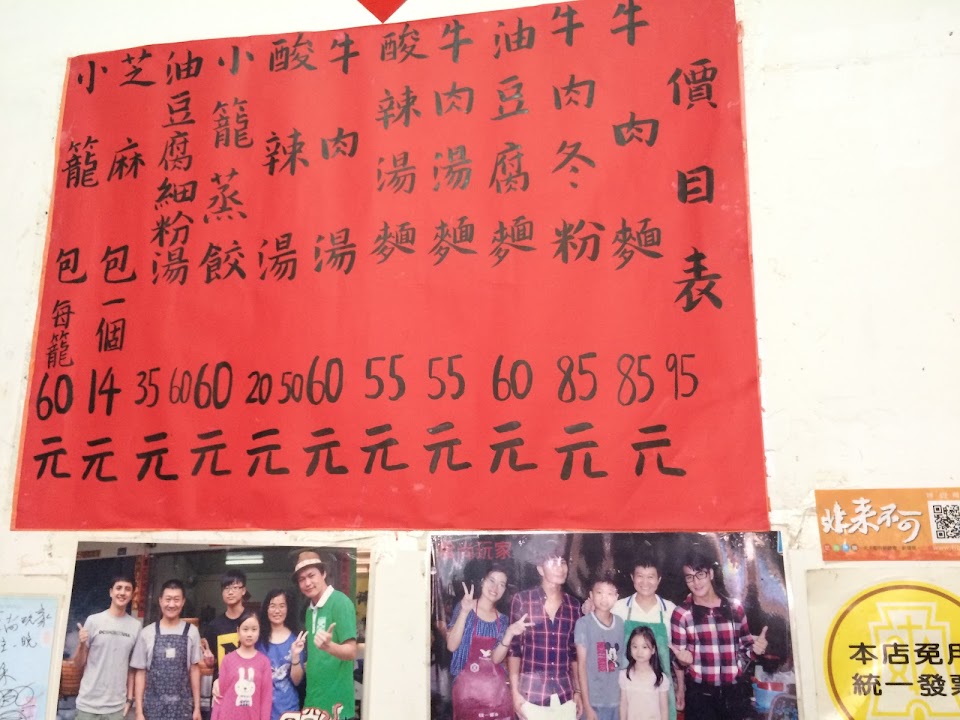 價目表
牛肉麵 85 95元
牛肉冬粉 85元
油豆腐麵 60元
牛肉湯麵 55元
酸辣湯麵 55元
牛肉湯 60元
酸辣湯 20 50元
小籠蒸餃 60元
油豆腐細粉湯 35 60元
芝麻包一個 14元
小籠包每籠 60元
尚玩家
非来不可
本店免用
統一發票